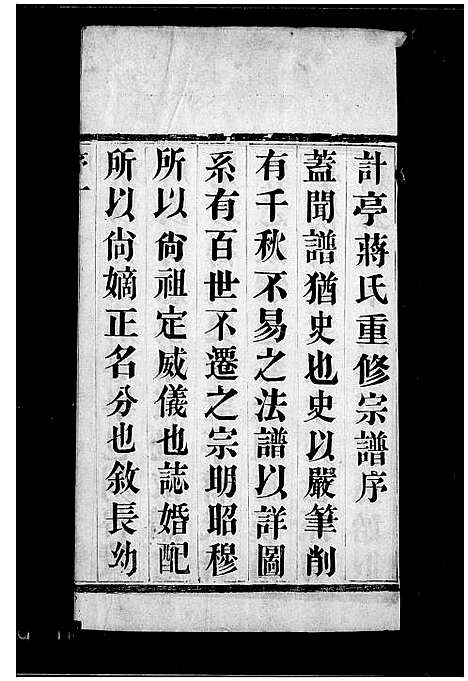 計亭蔣氏重修宗譜序
蓋聞譜猶史也史以嚴筆削
有千秋不易之法譜以詳圖
系有百世不遷之宗明昭穆
所以尙祖定威儀也誌婚配
所以尙嫡正名分也敘長幼